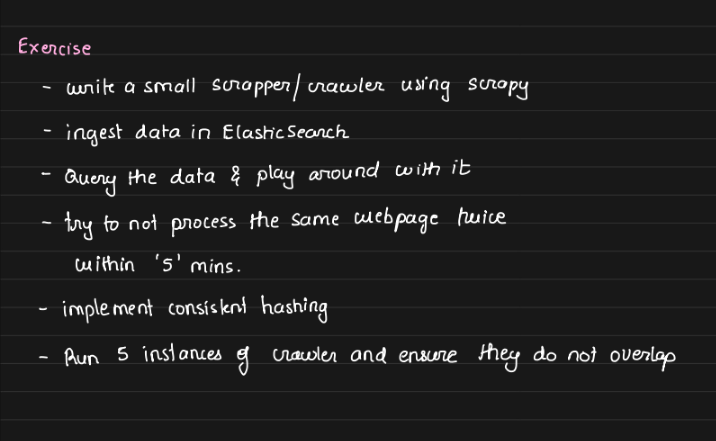 Exercise
- write a small scrapper/crawler using scrapy
- ingest data in ElasticSearch
- Query the data & play around with it
- try to not process the same webpage twice
within '5' mins.
- implement consistent hashing
- Run 5 instances of crawler and ensure they do not overlap